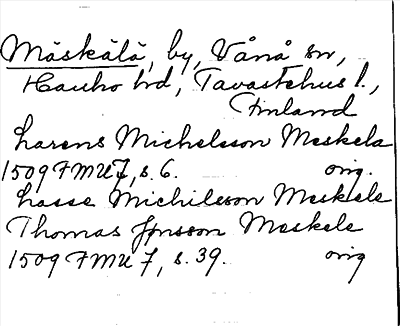 Mäskälä, by, Vånå sn,
Hauho hd, Tavastehus l.,
Finland
Larens Michelsson Meskela
1509 FMU 7, s. 6. orig.
Lasse Michilsson Meskele
Thomas Jonsson Meskele
1509 FMU 7, s. 39. orig